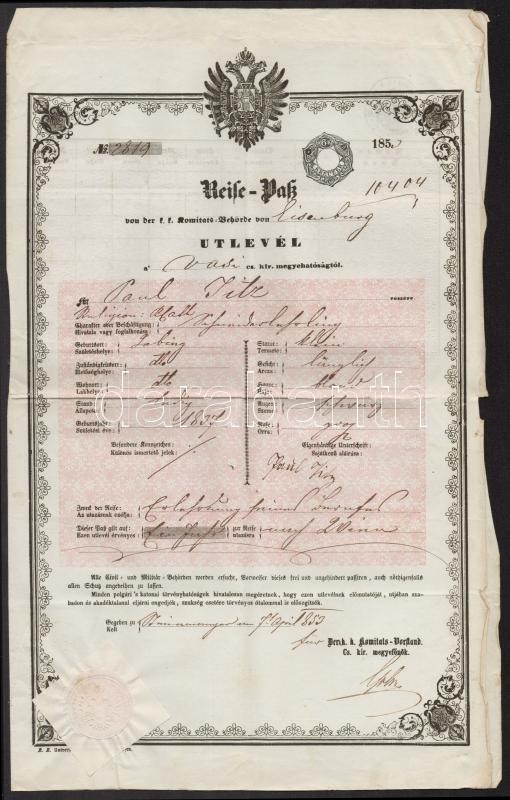 № 2819
185
10404
Reise-Paß
von der k. k. Komitats-Behörde von Eisenburg
UTLEVÉL
a' Vasi cs. kir. megyehatóságtól.
Für Paul Titz részére
Religion: Kath
Charakter oder Beschäftigung: Schneiderlehrling
Hivatala vagy foglalkozása:
Geburtsort:
Születéshelye:
Zuständigkeitsort: dto
Illetőséghelye:
Wohnort: dto
Lakhelye:
Stand: ledig
Állapota:
Geburtsjahr:
Születési éve:
Besondere Kennzeichen:
Különös ismertető jelek:
Statur: klein
Termete:
Gesicht: länglich
Arcza:
Haare: blond
Haja:
Augen: schwarz
Szeme:
Nase:
Orra:
Eigenhändige Unterschrift:
Sajátkezü aláirása:
Paul Titz
darabanth
Zweck der Reise: Erlehrnung seines Berufes
Az utazásnak czélja:
Dieser Paß gilt auf: Ein Jahr zur Reise nach Wien
Ezen utlevél érvényes utazásra
Alle Civil- und Militär-Behörden werden ersucht, Vorweiser dieses frei und ungehindert passiren, auch nöthigenfalls
allen Schutz angedeihen zu lassen.
Minden polgári 's katonai törvényhatóságok hivatalosan megkéretnek, hogy ezen utlevélnek előmutatóját, utjában sza-
badon és akadálytalanul eljárni engedjék, szükség esetére törvényes oltalommal is elősegitsék.
Gegeben zu Steinamanger den 7t April 1853
Kelt
für Den k. k. Komitats-Vorstand.
Cs. kir. megyefőnök.